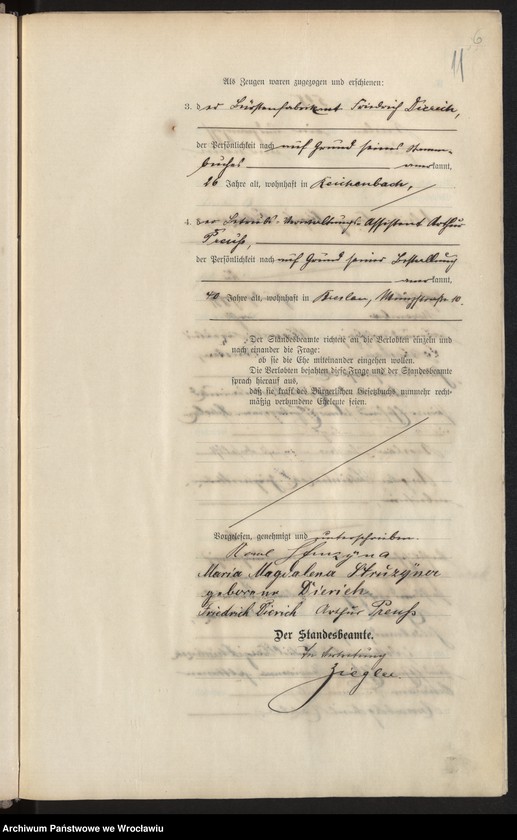 6
11
Als Zeugen waren zugezogen und erschienen:
3. der Bürstenfabrikant Friedrich Dierich,
der Persönlichkeit nach auf Grund seines Stamm-
buches anerkannt,
26 Jahre alt, wohnhaft in Reichenbach,
4. der Betriebs-Verwaltungs-Assistent Arthur
Preuß,
der Persönlichkeit nach auf Grund seiner Bestallung
anerkannt,
40 Jahre alt, wohnhaft in Breslau, Münzstraße 10.
Der Standesbeamte richtete an die Verlobten einzeln und
nach einander die Frage:
ob sie die Ehe miteinander eingehen wollen.
Die Verlobten bejahten diese Frage und der Standesbeamte
sprach hierauf aus,
daß sie kraft des Bürgerlichen Gesetzbuchs nunmehr recht-
mäßig verbundene Eheleute seien.
Vorgelesen, genehmigt und unterschrieben.
Struzyna
Maria Magdalena Struzyna
geborene Dierich
Friedrich Dierich Arthur Preuß
Der Standesbeamte.
In Vertretung
Ziegler
Archiwum Państwowe we Wrocławiu